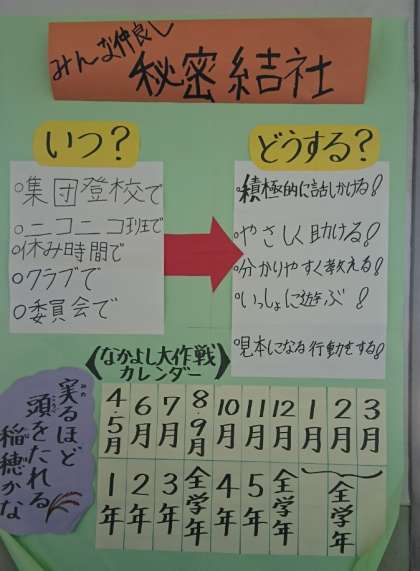 みんな仲良し
秘密結社
いつ?
○集団登校で
○ニコニコ班で
○休み時間で
○クラブで
○委員会で
どうする?
○積極的に話しかける!
○やさしく助ける!
○分かりやすく教える!
○いっしょに遊ぶ!
○見本になる行動をする!
〈なかよし大作戦
カレンダー〉
4・5月 6月 7月 8・9月 10月 11月 12月 1月 2月 3月
1年 2年 3年 全学年 4年 5年 全学年 全学年
実るほど
頭をたれる
稲穂かな